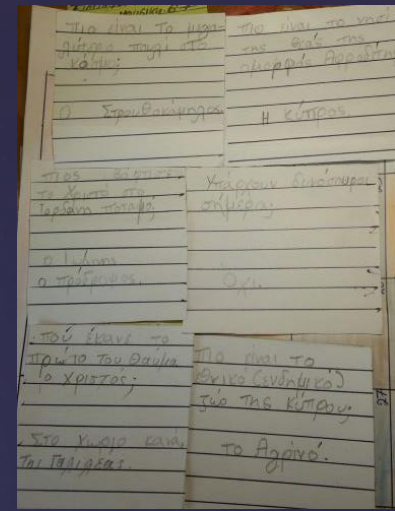 Πιο είναι το μεγα-
λύτερο πουλί στο
κόσμο;
Ο Στρουθοκάμηλος
Πιο είναι το νησί
της θεάς της
ομορφιάς Αφροδίτης
Η Κύπρος
Πιος βάφτισε
το Χριστό στο
Ιορδάνη ποταμό;
ο Ιωάννης
ο πρόδρομος.
Υπάρχουν δεινόσαυροι
σήμερα;
Όχι.
Πού έκανε το
πρώτο του θαύμα
ο Χριστός;
Στο χωριό Κανά
της Γαλιλαίας.
Πιο είναι το
εθνικό (ενδημικό)
ζώο της Κύπρου;
το Αγρινό.
27